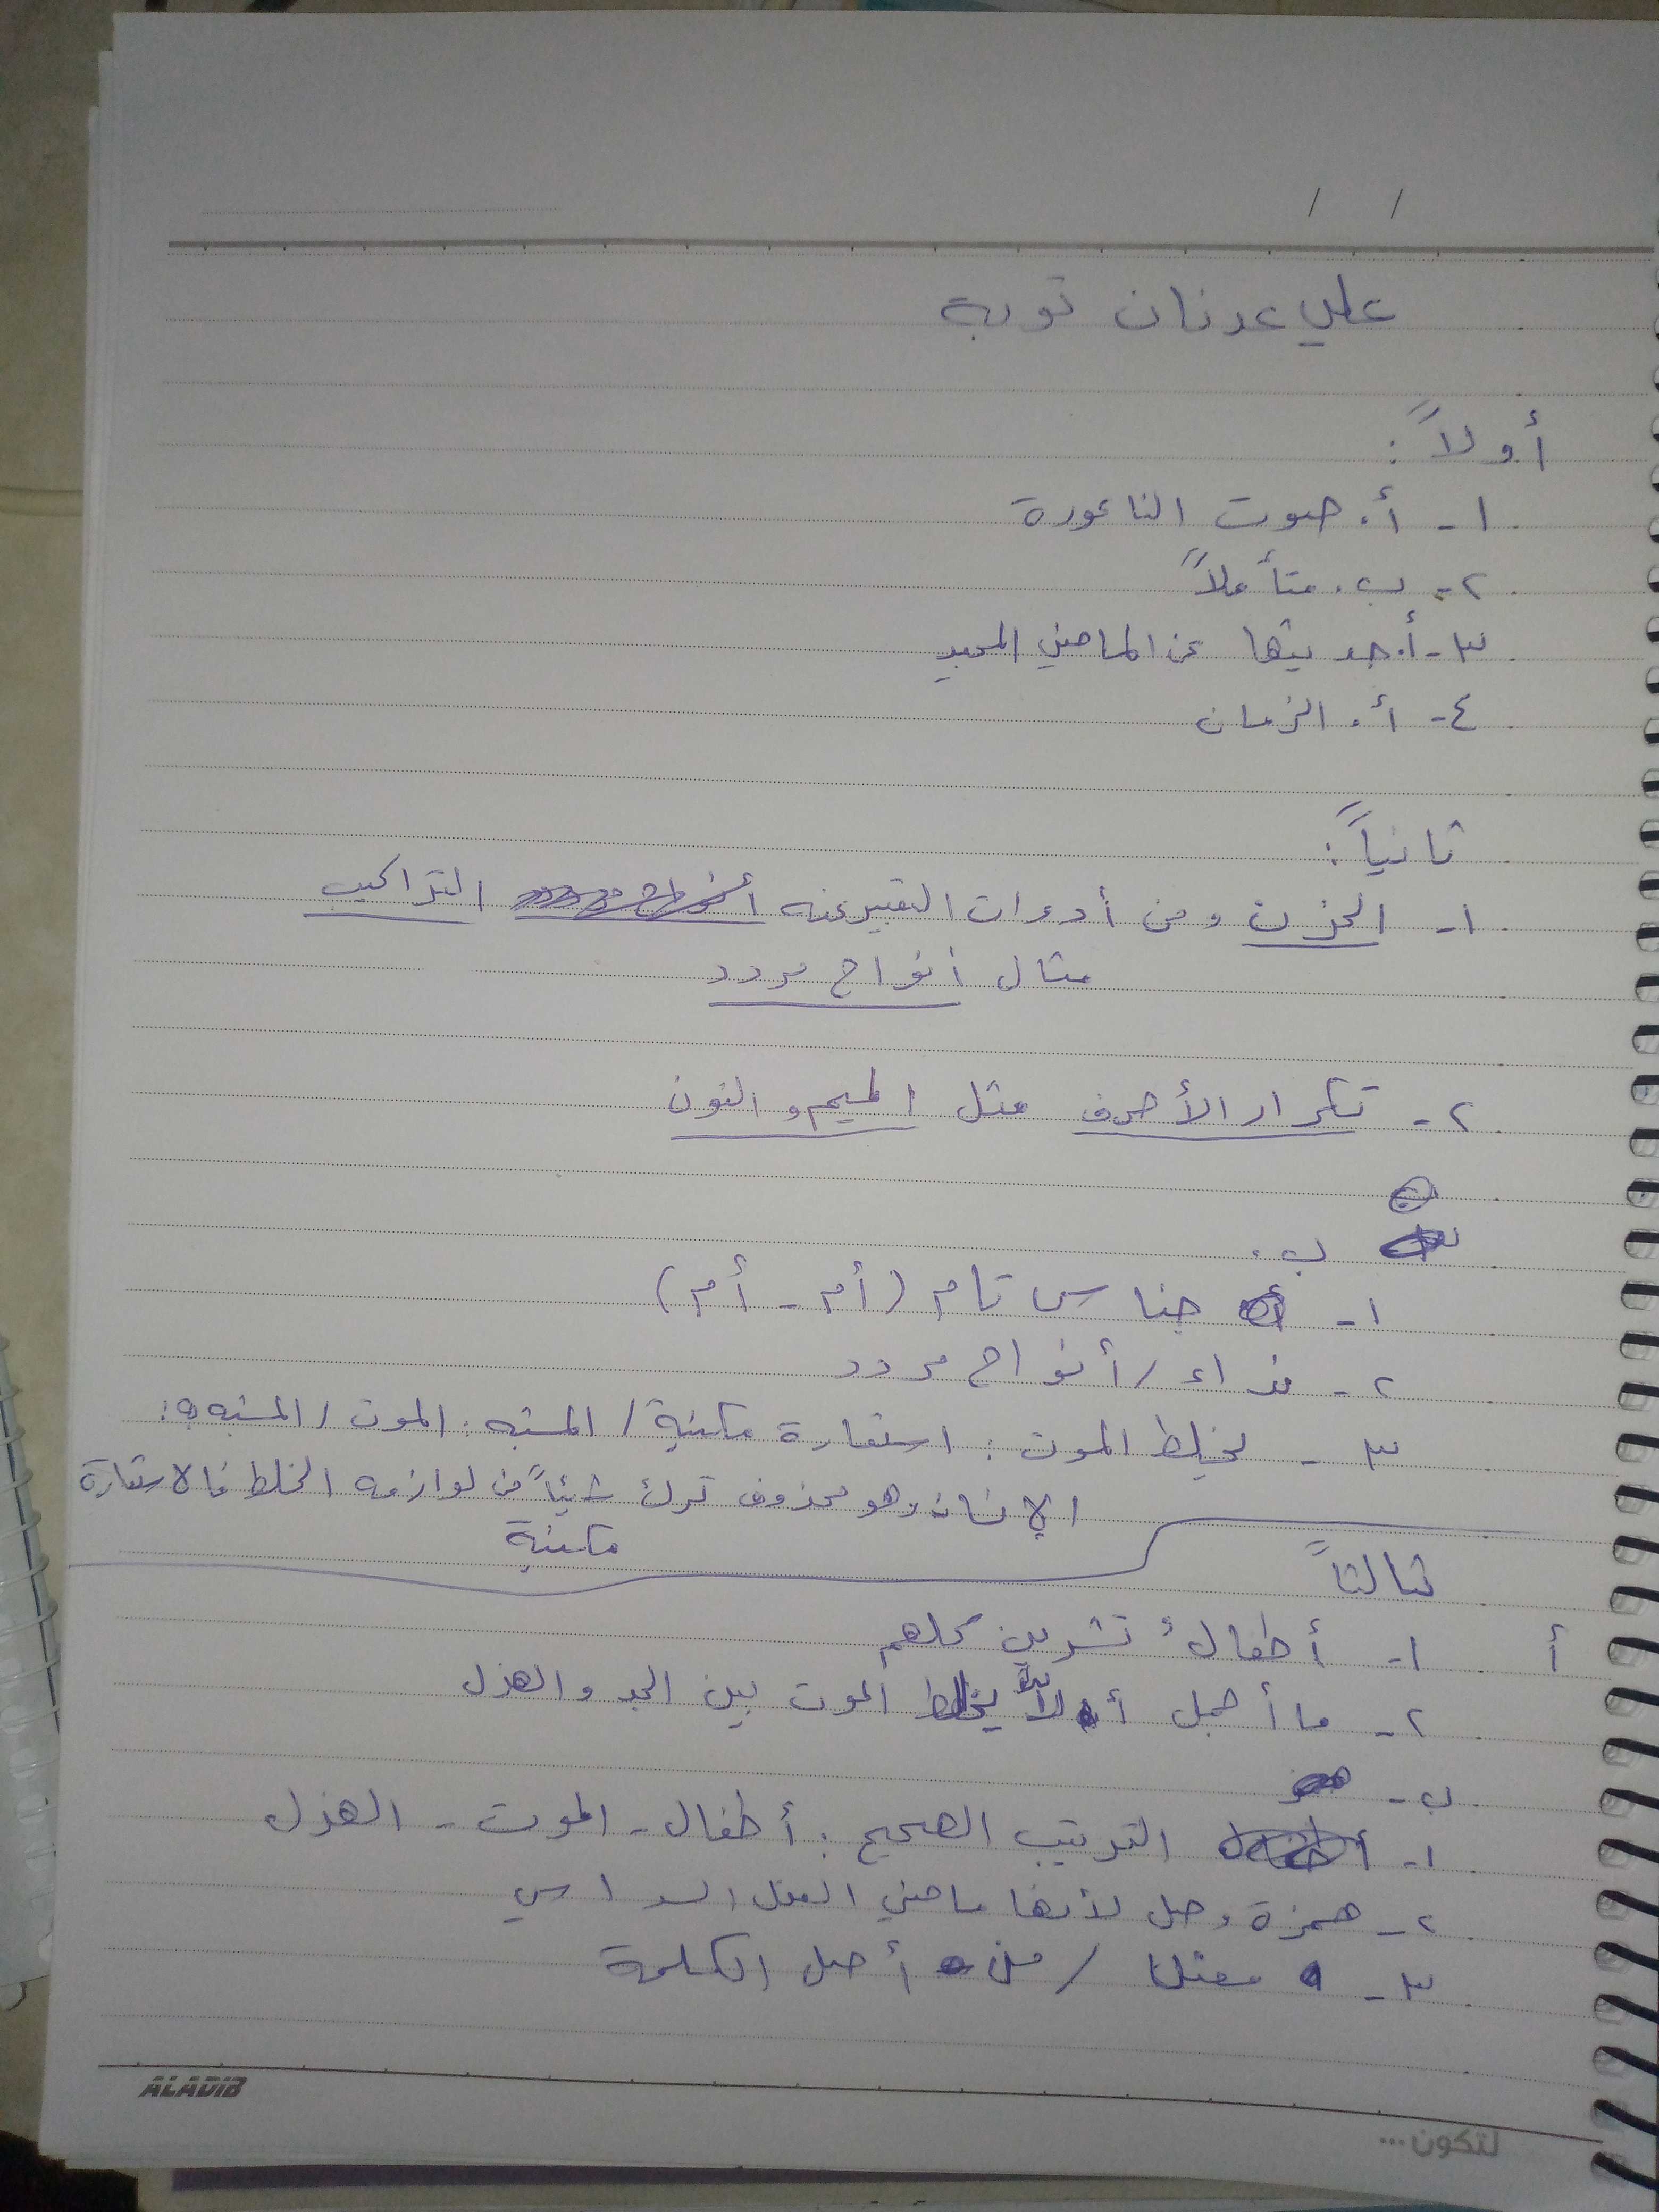 / /
علي عدنان توبة
أولاً:
١- أ. صوت الناعورة
٢- ب. متأملاً
٣- أ. حديثها عن الماضي المجيد
٤- أ. الزمان
ثانياً:
١- الحزن ومن أدوات التعبير عنه التراكيب
مثال أفواج مردد
٢- تكرار الأحرف مثل الميم والنون
ب.
١- جناس تام (أم - أم)
٢- نداء / أفواج مردد
٣- يخلط الموت: استعارة مكنية / المشبه: الموت / المشبه به:
الإنسان وهو محذوف ترك شيئاً من لوازمه الخلط فالاستعارة
مكنية
ثالثاً
أ ١- أطفالُ تشرين كلهم
٢- ما أجمل ألاّ يخلط الموت بين الجد والهزل
ب-
١- الترتيب الصحيح: أطفال - الموت - الهزل
٢- همزة وصل لأنها ماضي الفعل السداسي
٣- / من أصل الكلمة
ALADIB
لتكون...